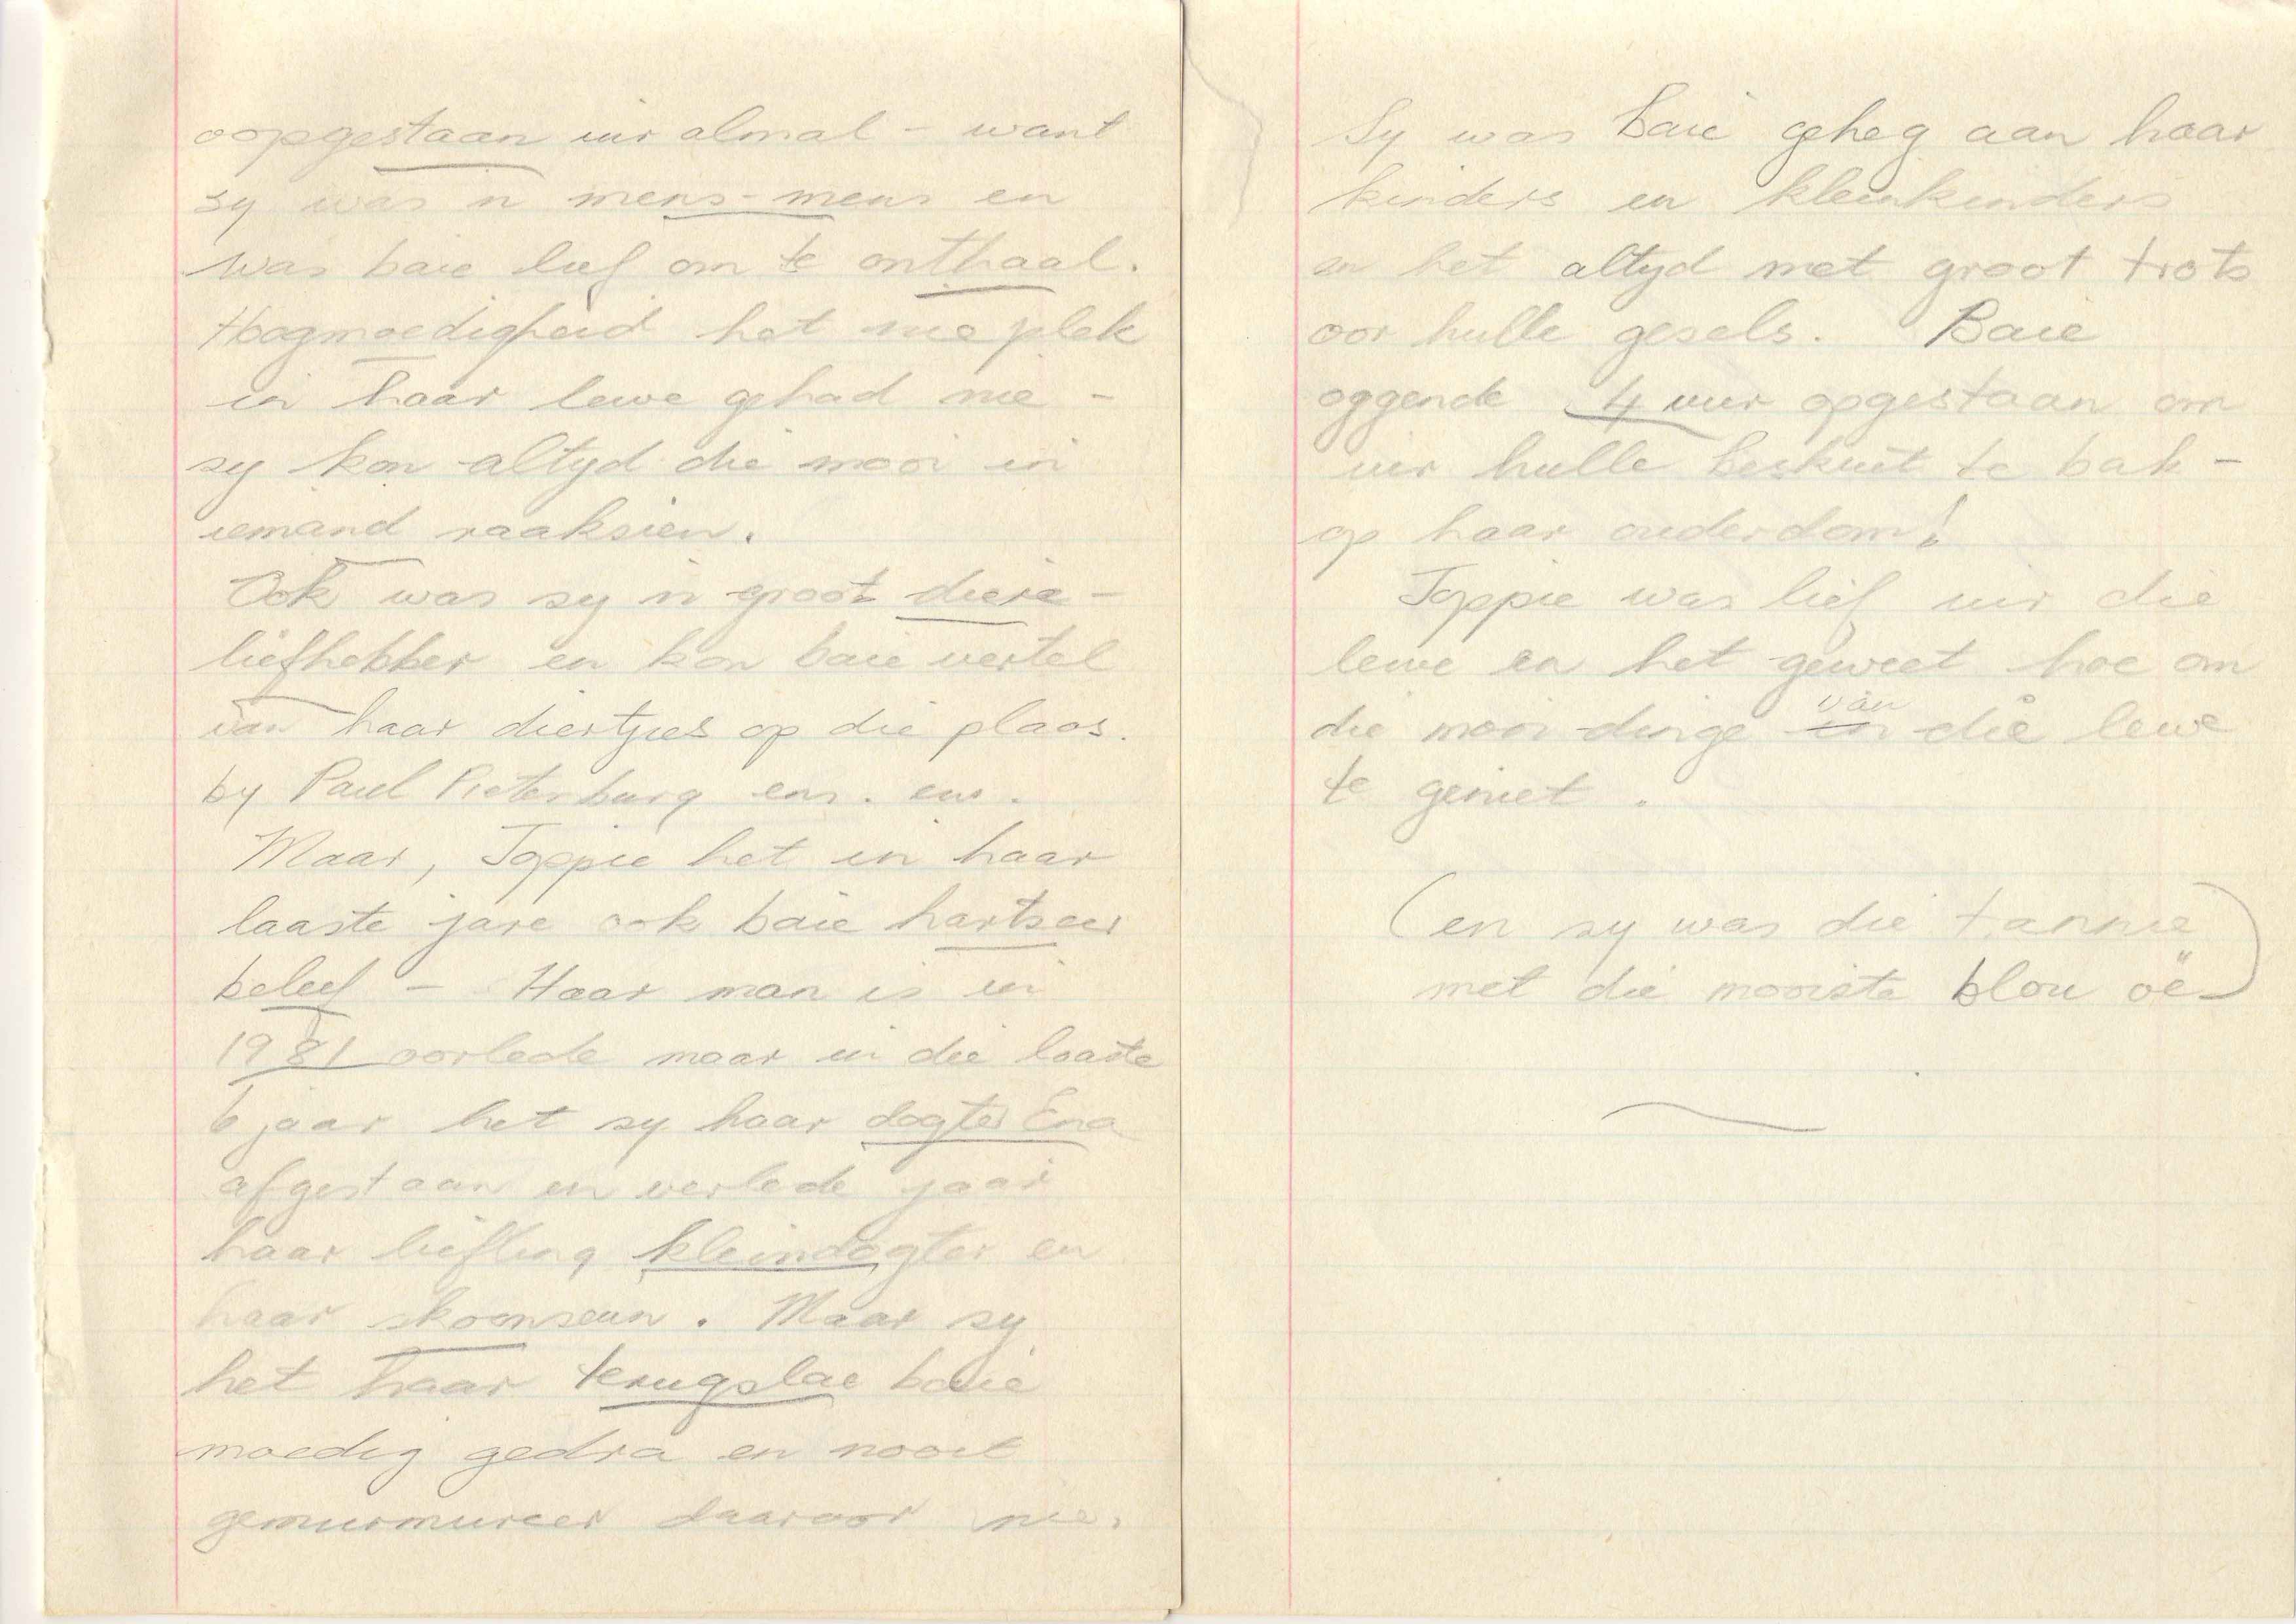 oopgestaan vir almal - want
sy was 'n mens-mens en
was baie lief om te onthaal.
Hoogmoedigheid het nie plek
in haar lewe gehad nie -
sy kon altyd die mooi in
iemand raaksien.
Ook was sy 'n groot diere-
liefhebber en kon baie vertel
van haar diertjies op die plaas.
by Paul Pietersburg ens. ens.
Maar, Joppie het in haar
laaste jare ook baie hartseer
beleef - Haar man is in
1981 oorlede maar in die laaste
6 jaar het sy haar dogter Ena
afgestaan en verlede jaar
haar liefling kleindogter en
haar skoonseun. Maar sy
het haar terugslae baie
moedig gedra en nooit
gemurmureer daaroor nie.
Sy was baie geheg aan haar
kinders en kleinkinders
en het altyd met groot trots
oor hulle gesels. Baie
oggende 4 uur opgestaan om
vir hulle beskuit te bak -
op haar ouderdom!
Joppie was lief vir die
lewe en het geweet hoe om
die mooi dinge in van die lewe
te geniet.
(en sy was die tannie
met die mooiste blou oë)